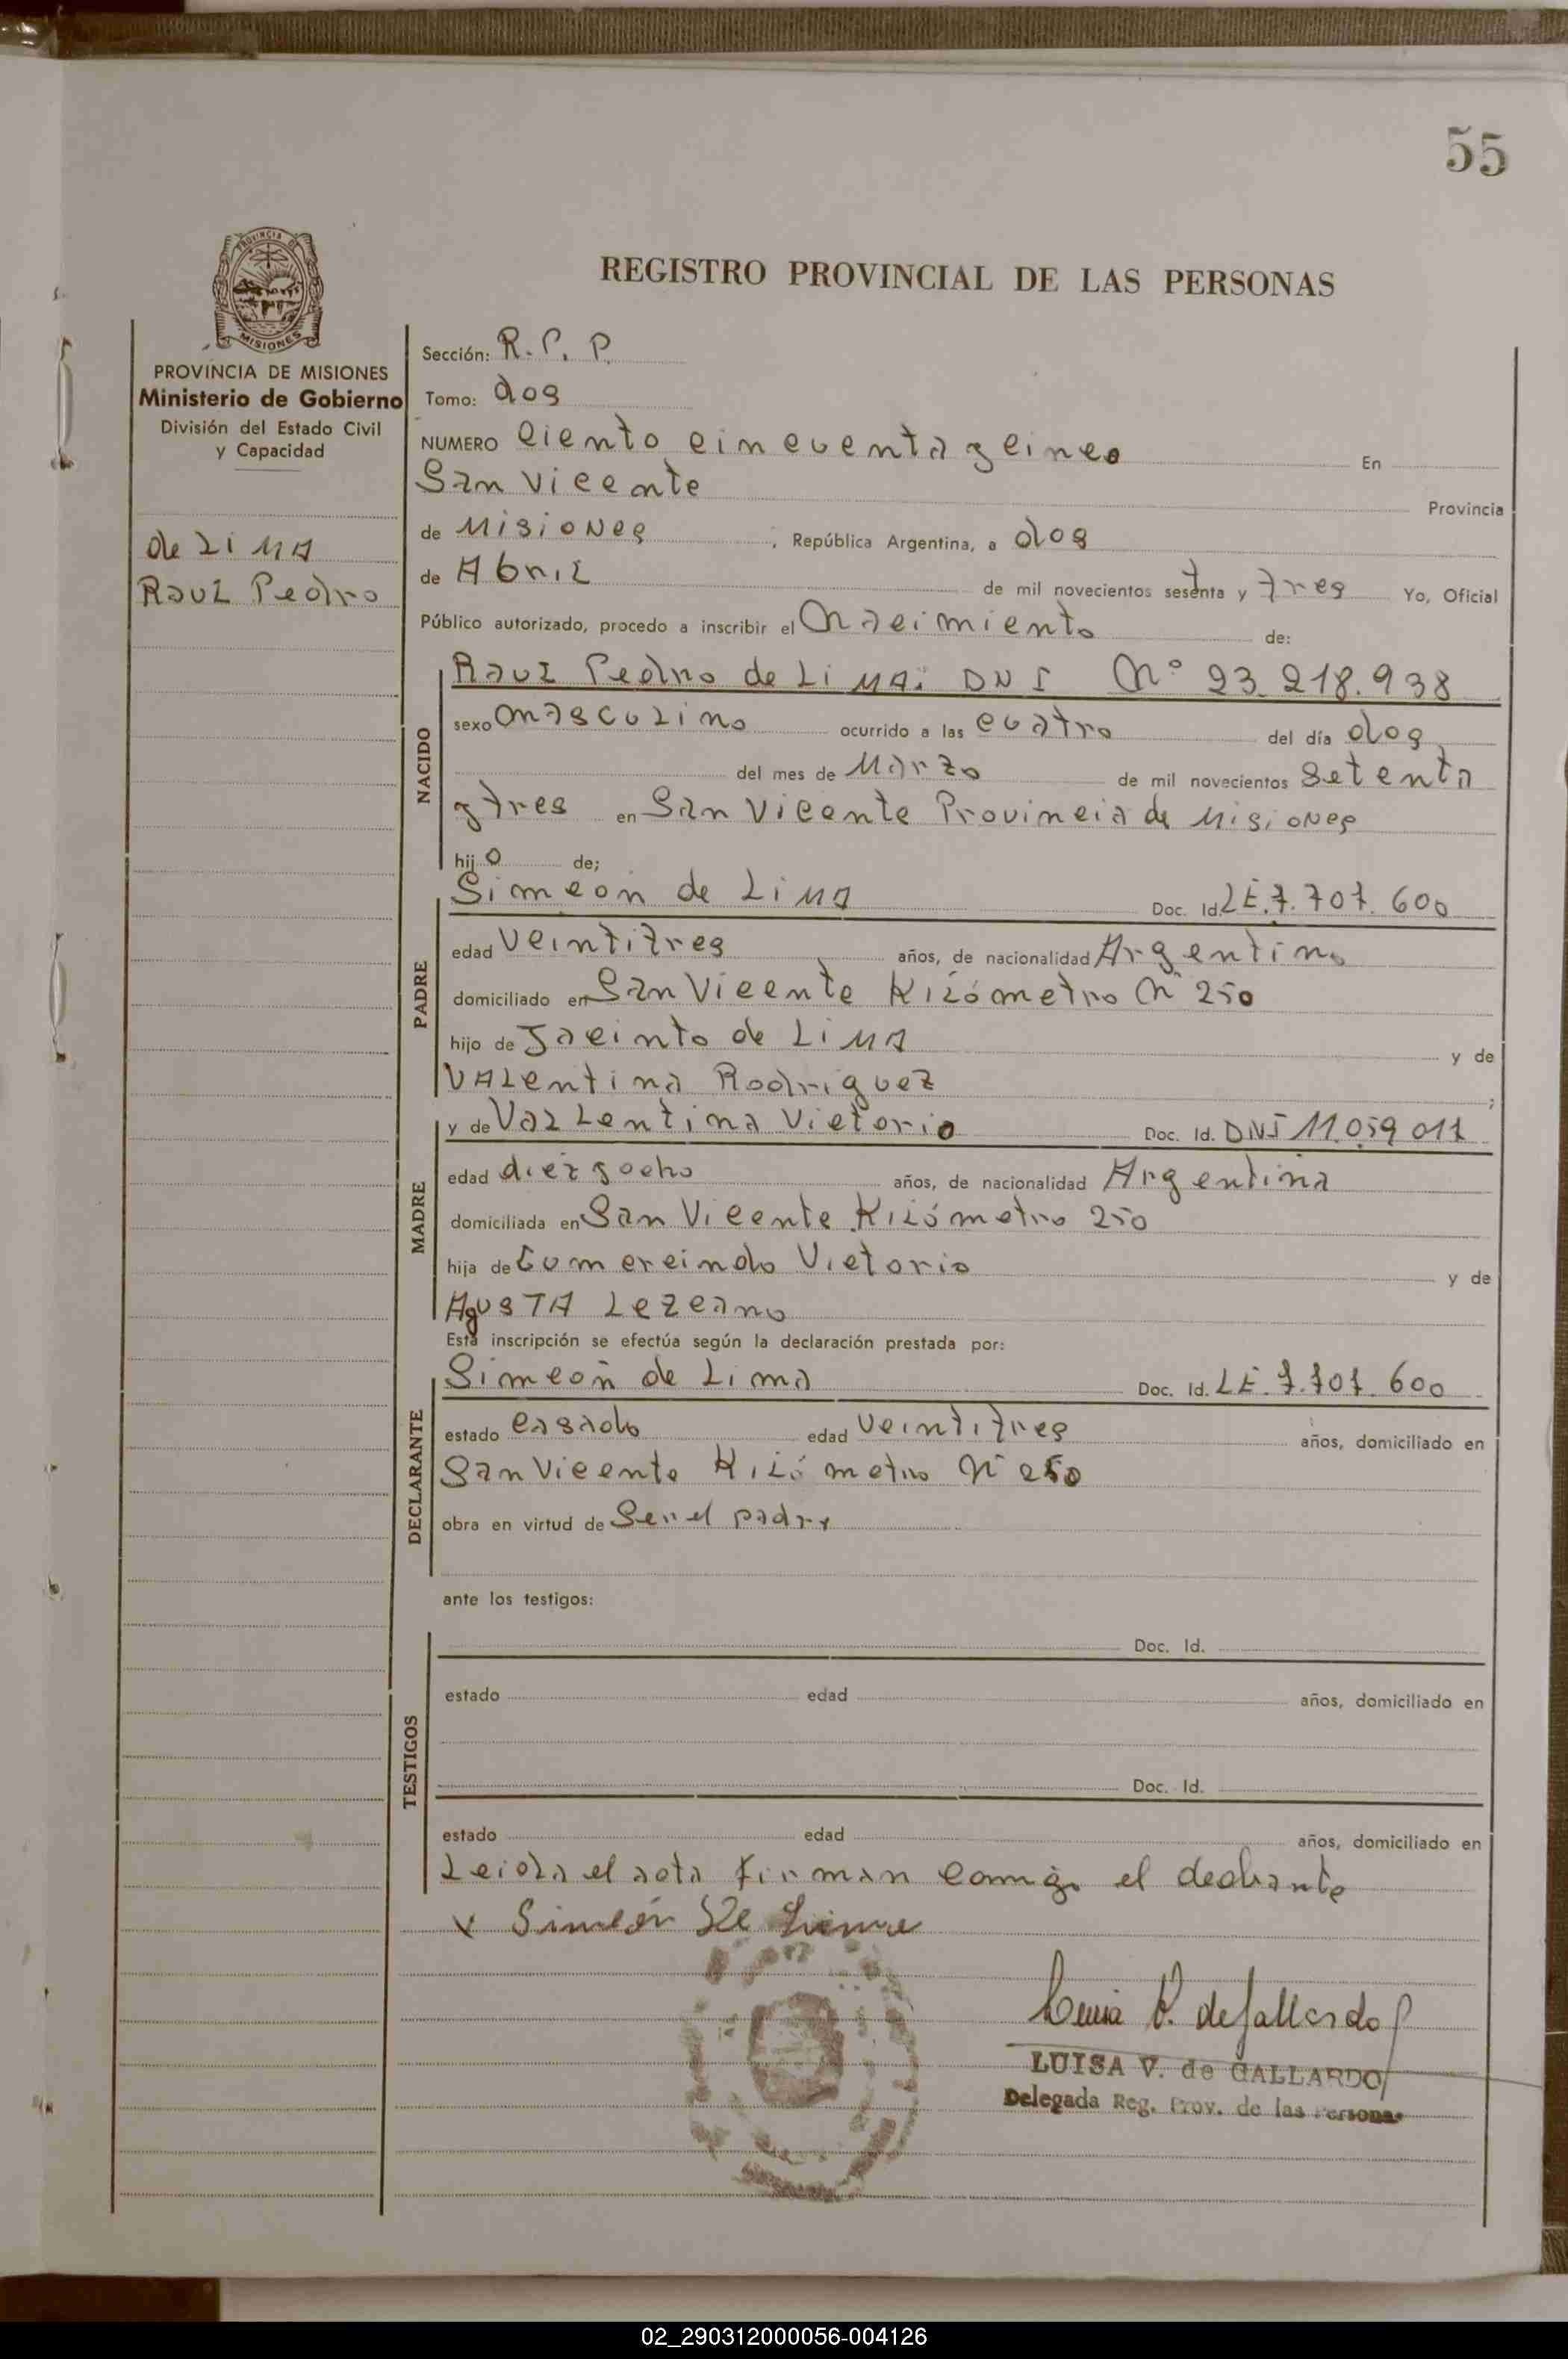 55
PROVINCIA DE
MISIONES
REGISTRO PROVINCIAL DE LAS PERSONAS
PROVINCIA DE MISIONES
Ministerio de Gobierno
División del Estado Civil
y Capacidad
de LiMA
Raul Pedro
Sección: R. P. P.
Tomo: dos
NUMERO Ciento cincuenta y cinco En
San Vicente Provincia
de Misiones , República Argentina, a dos
de Abril de mil novecientos setenta y tres Yo, Oficial
Público autorizado, procedo a inscribir el Nacimiento de:
NACIDO
Raul Pedro de LiMA: DNI Nº 23.218.938
sexo masculino ocurrido a las cuatro del día dos
del mes de Marzo de mil novecientos setenta
y tres en San Vicente Provincia de Misiones
hij o de;
PADRE
Simeón de LiMA Doc. Id. LE.7.707.600
edad veintitres años, de nacionalidad Argentino
domiciliado en San Vicente Kilómetro Nº 250
hijo de Jacinto de LiMA y de
VALentina Rodriguez ;
MADRE
y de Vallentina Victorio Doc. Id. DNI 11.059.011
edad diez y ocho años, de nacionalidad Argentina
domiciliada en San Vicente Kilómetro 250
hija de Gumercindo Victorio y de
AgusTA Lezcano
Esta inscripción se efectúa según la declaración prestada por:
DECLARANTE
Simeón de Lima Doc. Id. LE.7.707.600
estado casado edad veintitres años, domiciliado en
San Vicente Kilómetro Nº 250
obra en virtud de Ser el padre
ante los testigos:
TESTIGOS
Doc. Id.
estado edad años, domiciliado en
Doc. Id.
estado edad años, domiciliado en
Leida el acta firman conmigo el
x Simeón De Lima
Luisa V. de Gallardo
LUISA V. de GALLARDO
Delegada Reg. Prov. de las Personas
02_290312000056-004126